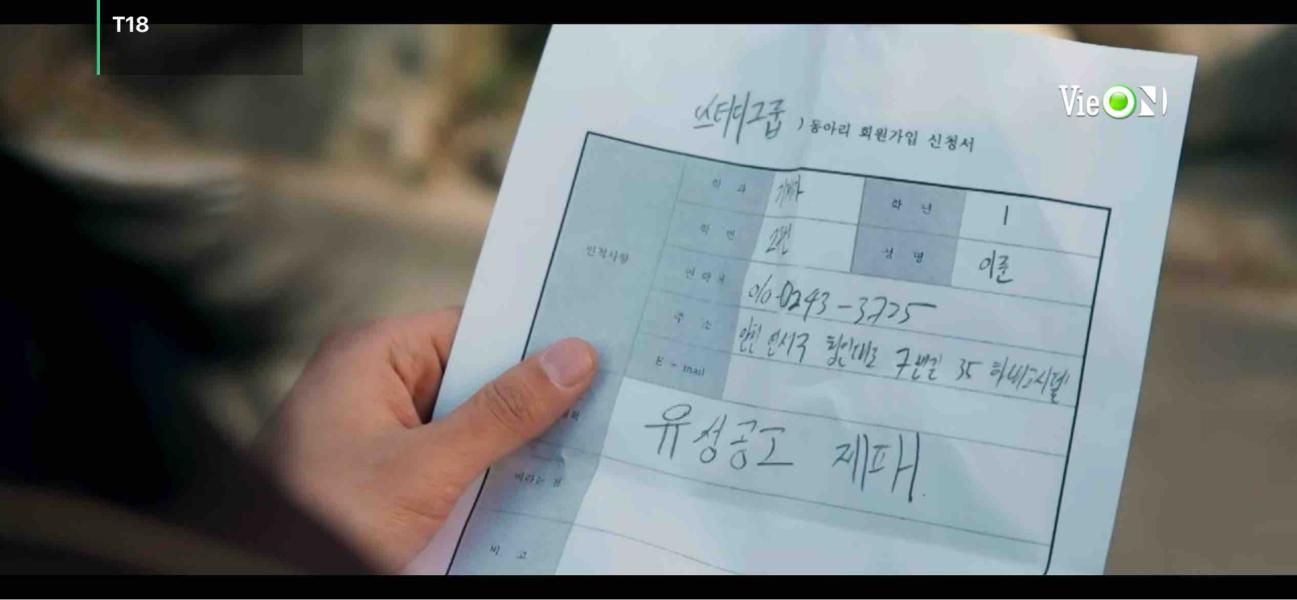 T18
VieON
(스터디그룹) 동아리 회원가입 신청서
인적사항
학 과 기계과 학 년 1
학 번 2번 성 명 이준
연 락 처 010-0243-3725
주 소 35
E - mail
유성공고 제패.
바라는 점
비 고